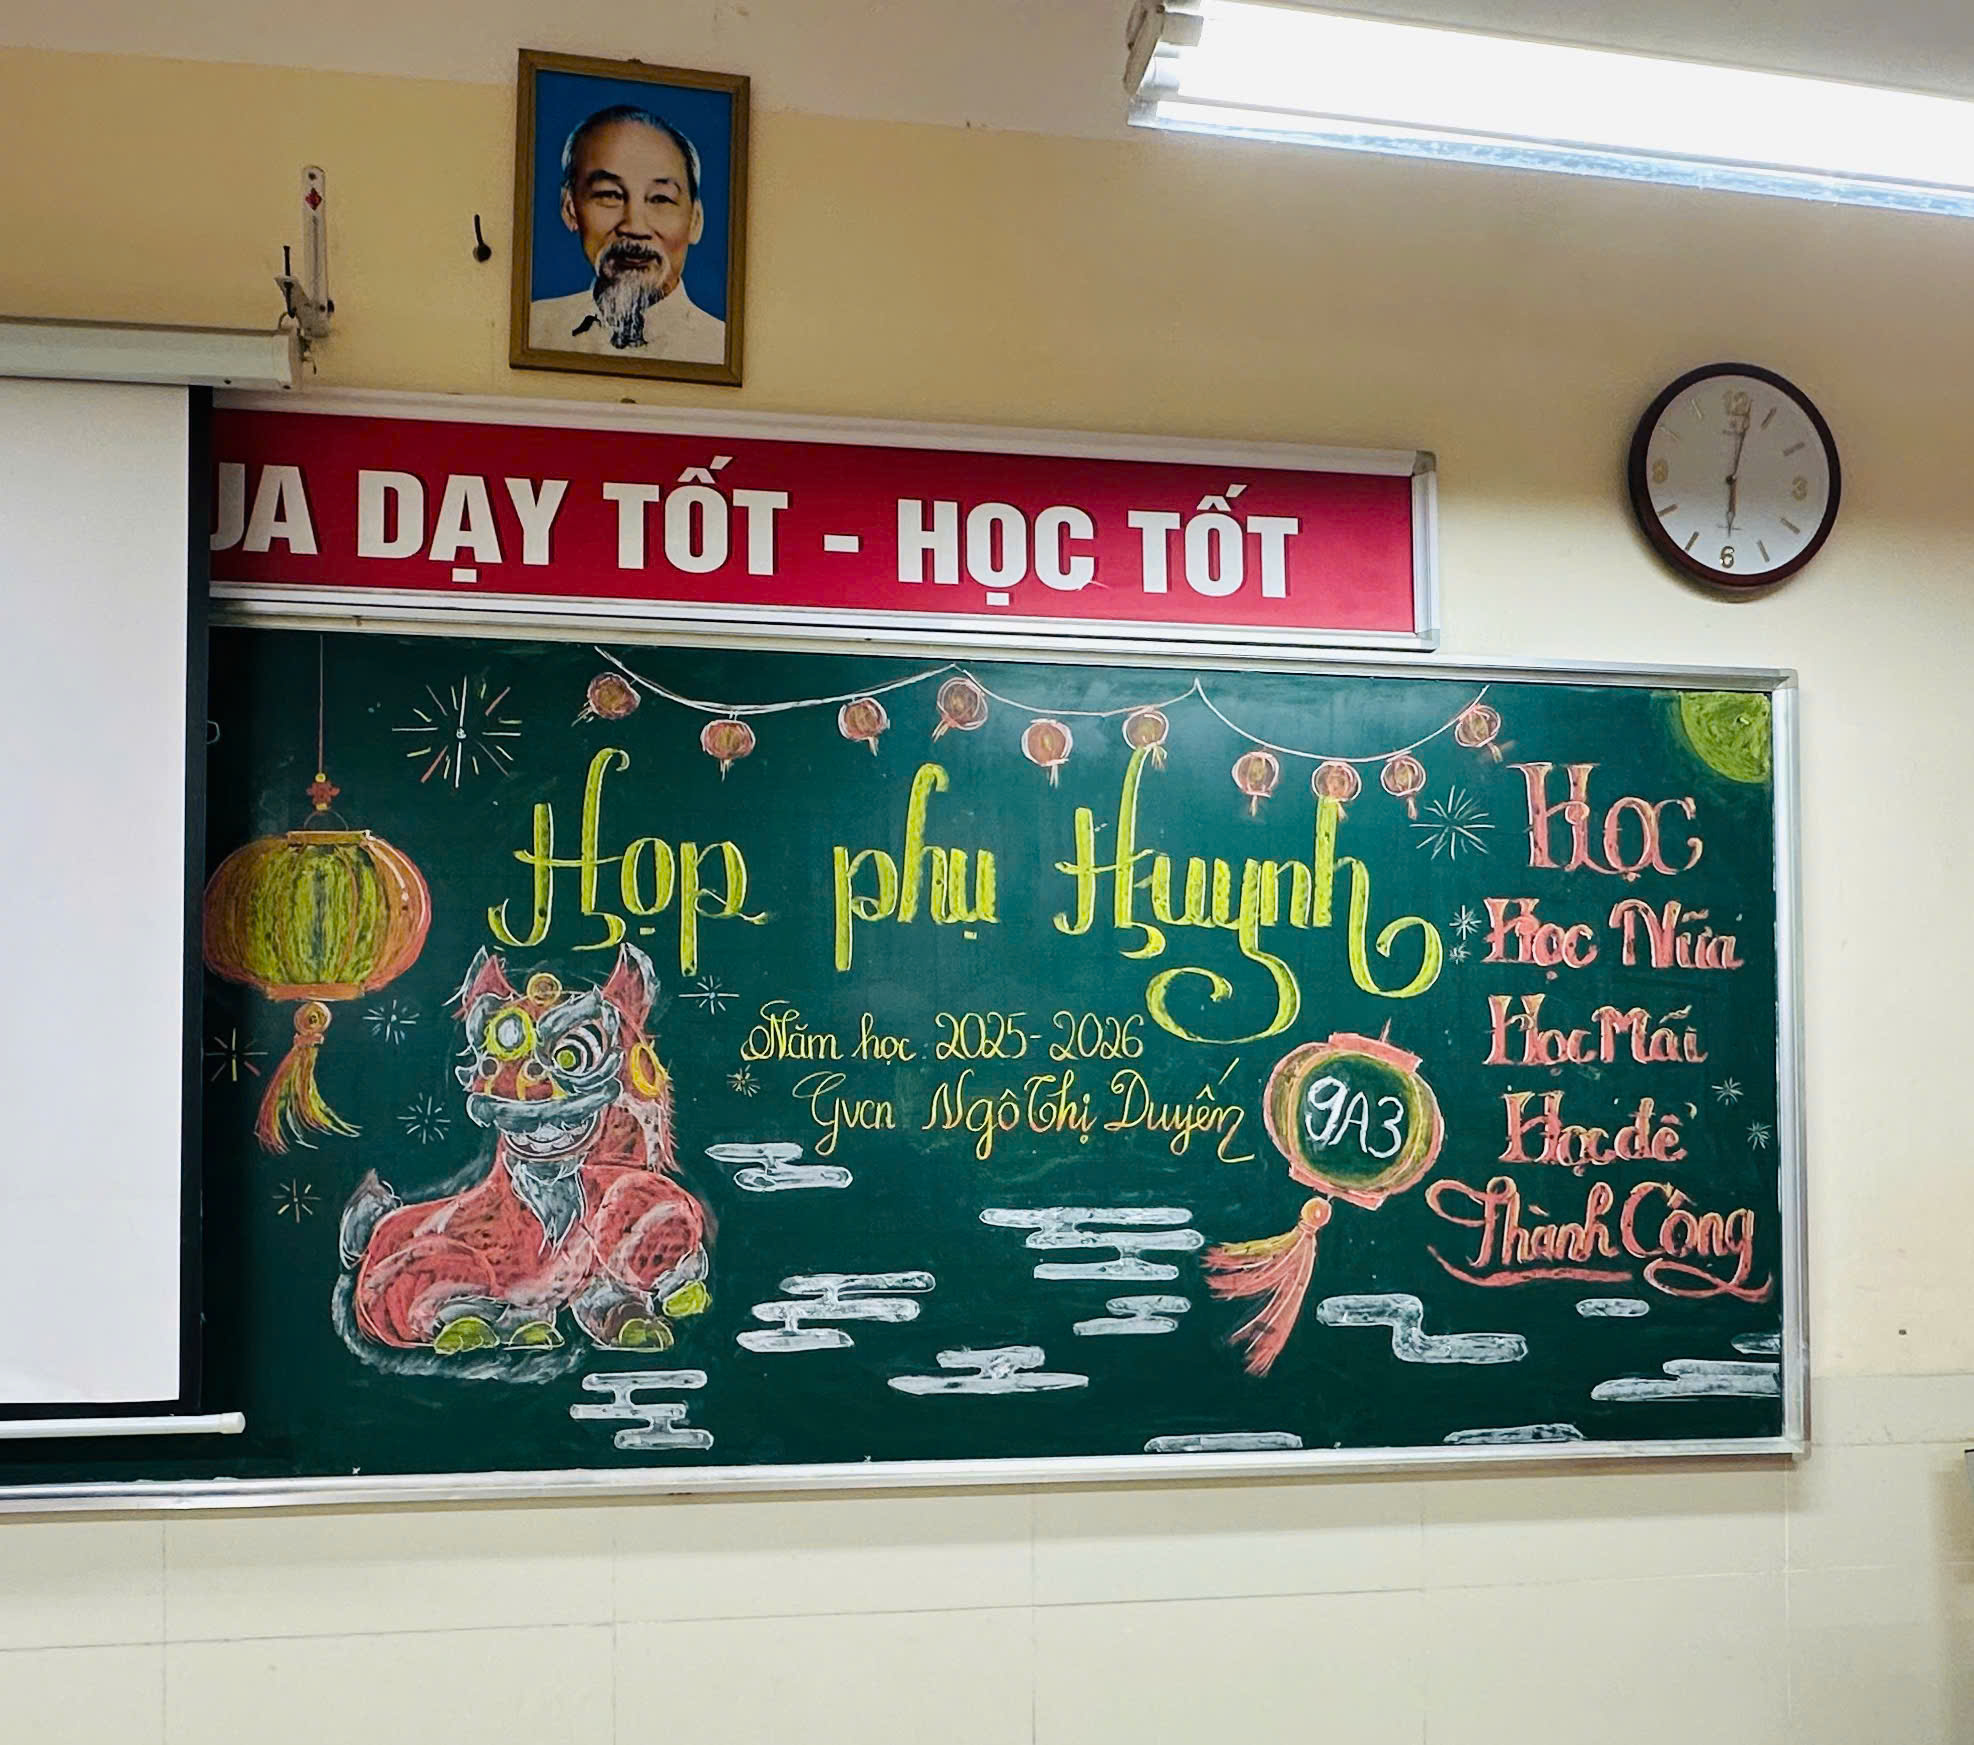 UA DẠY TỐT - HỌC TỐT
12
3
6
9
Họp phụ Huynh
Năm học 2025-2026
Gvcn Ngô Thị Duyến
9A3
Học
Học Nữa
Học Mãi
Học để
Thành Công